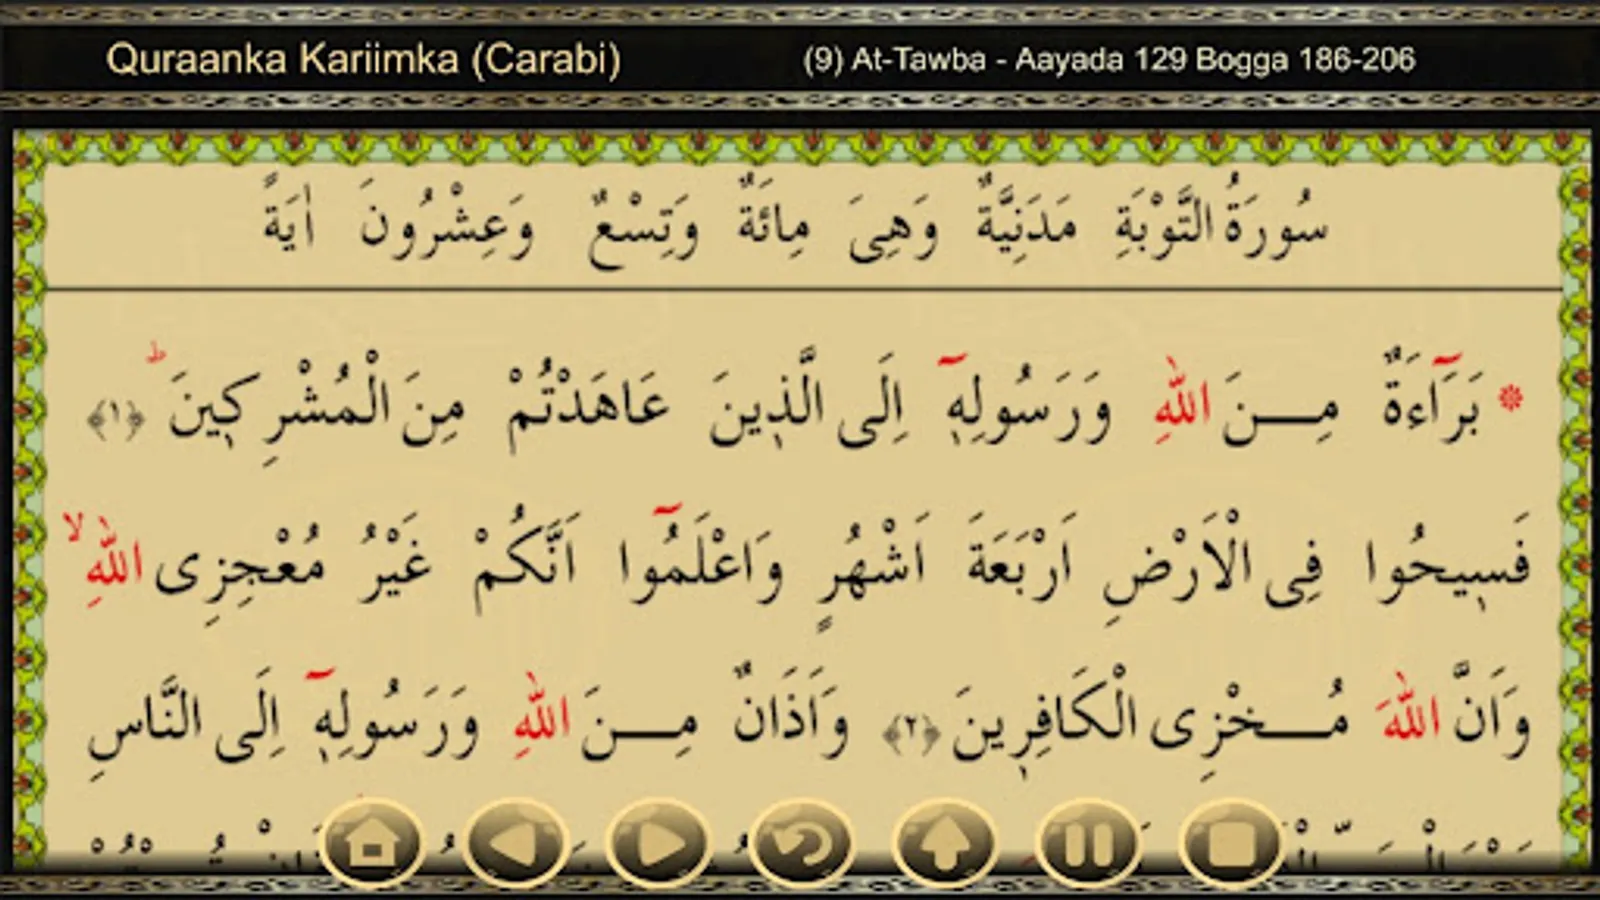 Quraanka Kariimka (Carabi)
(9) At-Tawba - Aayada 129 Bogga 186-206
سُورَةُ التَّوْبَةِ مَدَنِيَّةٌ وَهِىَ مِائَةٌ وَتِسْعٌ وَعِشْرُونَ اٰيَةً
❊ بَرَٓاءَةٌ مِـنَ اللّٰهِ وَرَسُولِه۪ٓ اِلَى الَّذ۪ينَ عَاهَدْتُمْ مِنَ الْمُشْرِك۪ينَۜ ﴿١﴾
فَس۪يحُوا فِى الْاَرْضِ اَرْبَعَةَ اَشْهُرٍ وَاعْلَمُٓوا اَنَّكُمْ غَيْرُ مُعْجِزِى اللّٰهِۙ
وَاَنَّ اللّٰهَ مُـخْزِى الْكَافِر۪ينَ ﴿٢﴾ وَاَذَانٌ مِـنَ اللّٰهِ وَرَسُولِه۪ٓ اِلَى النَّاسِ